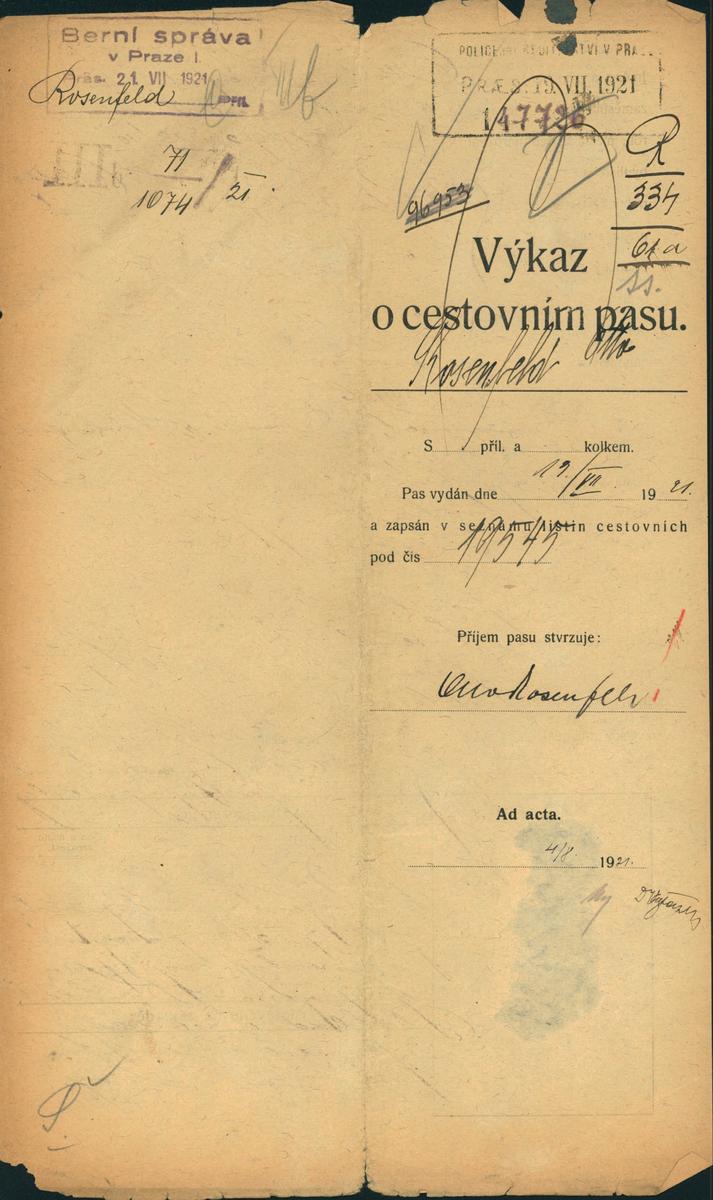 Berní správa
v Praze I.
präs. 21. VII 1921
Rosenfeld
příl.
71
1074 / 21.
PRÆS. 19. VII. 1921
147726
96953
R
334
61a
Výkaz
o cestovním pasu.
Rosenfeld Otto
S příl. a kolkem.
Pas vydán dne 19./VII 1921.
a zapsán v seznamu listin cestovních
pod čís 19545
Příjem pasu stvrzuje:
Otto Rosenfeld
Ad acta.
4/8. 1921.